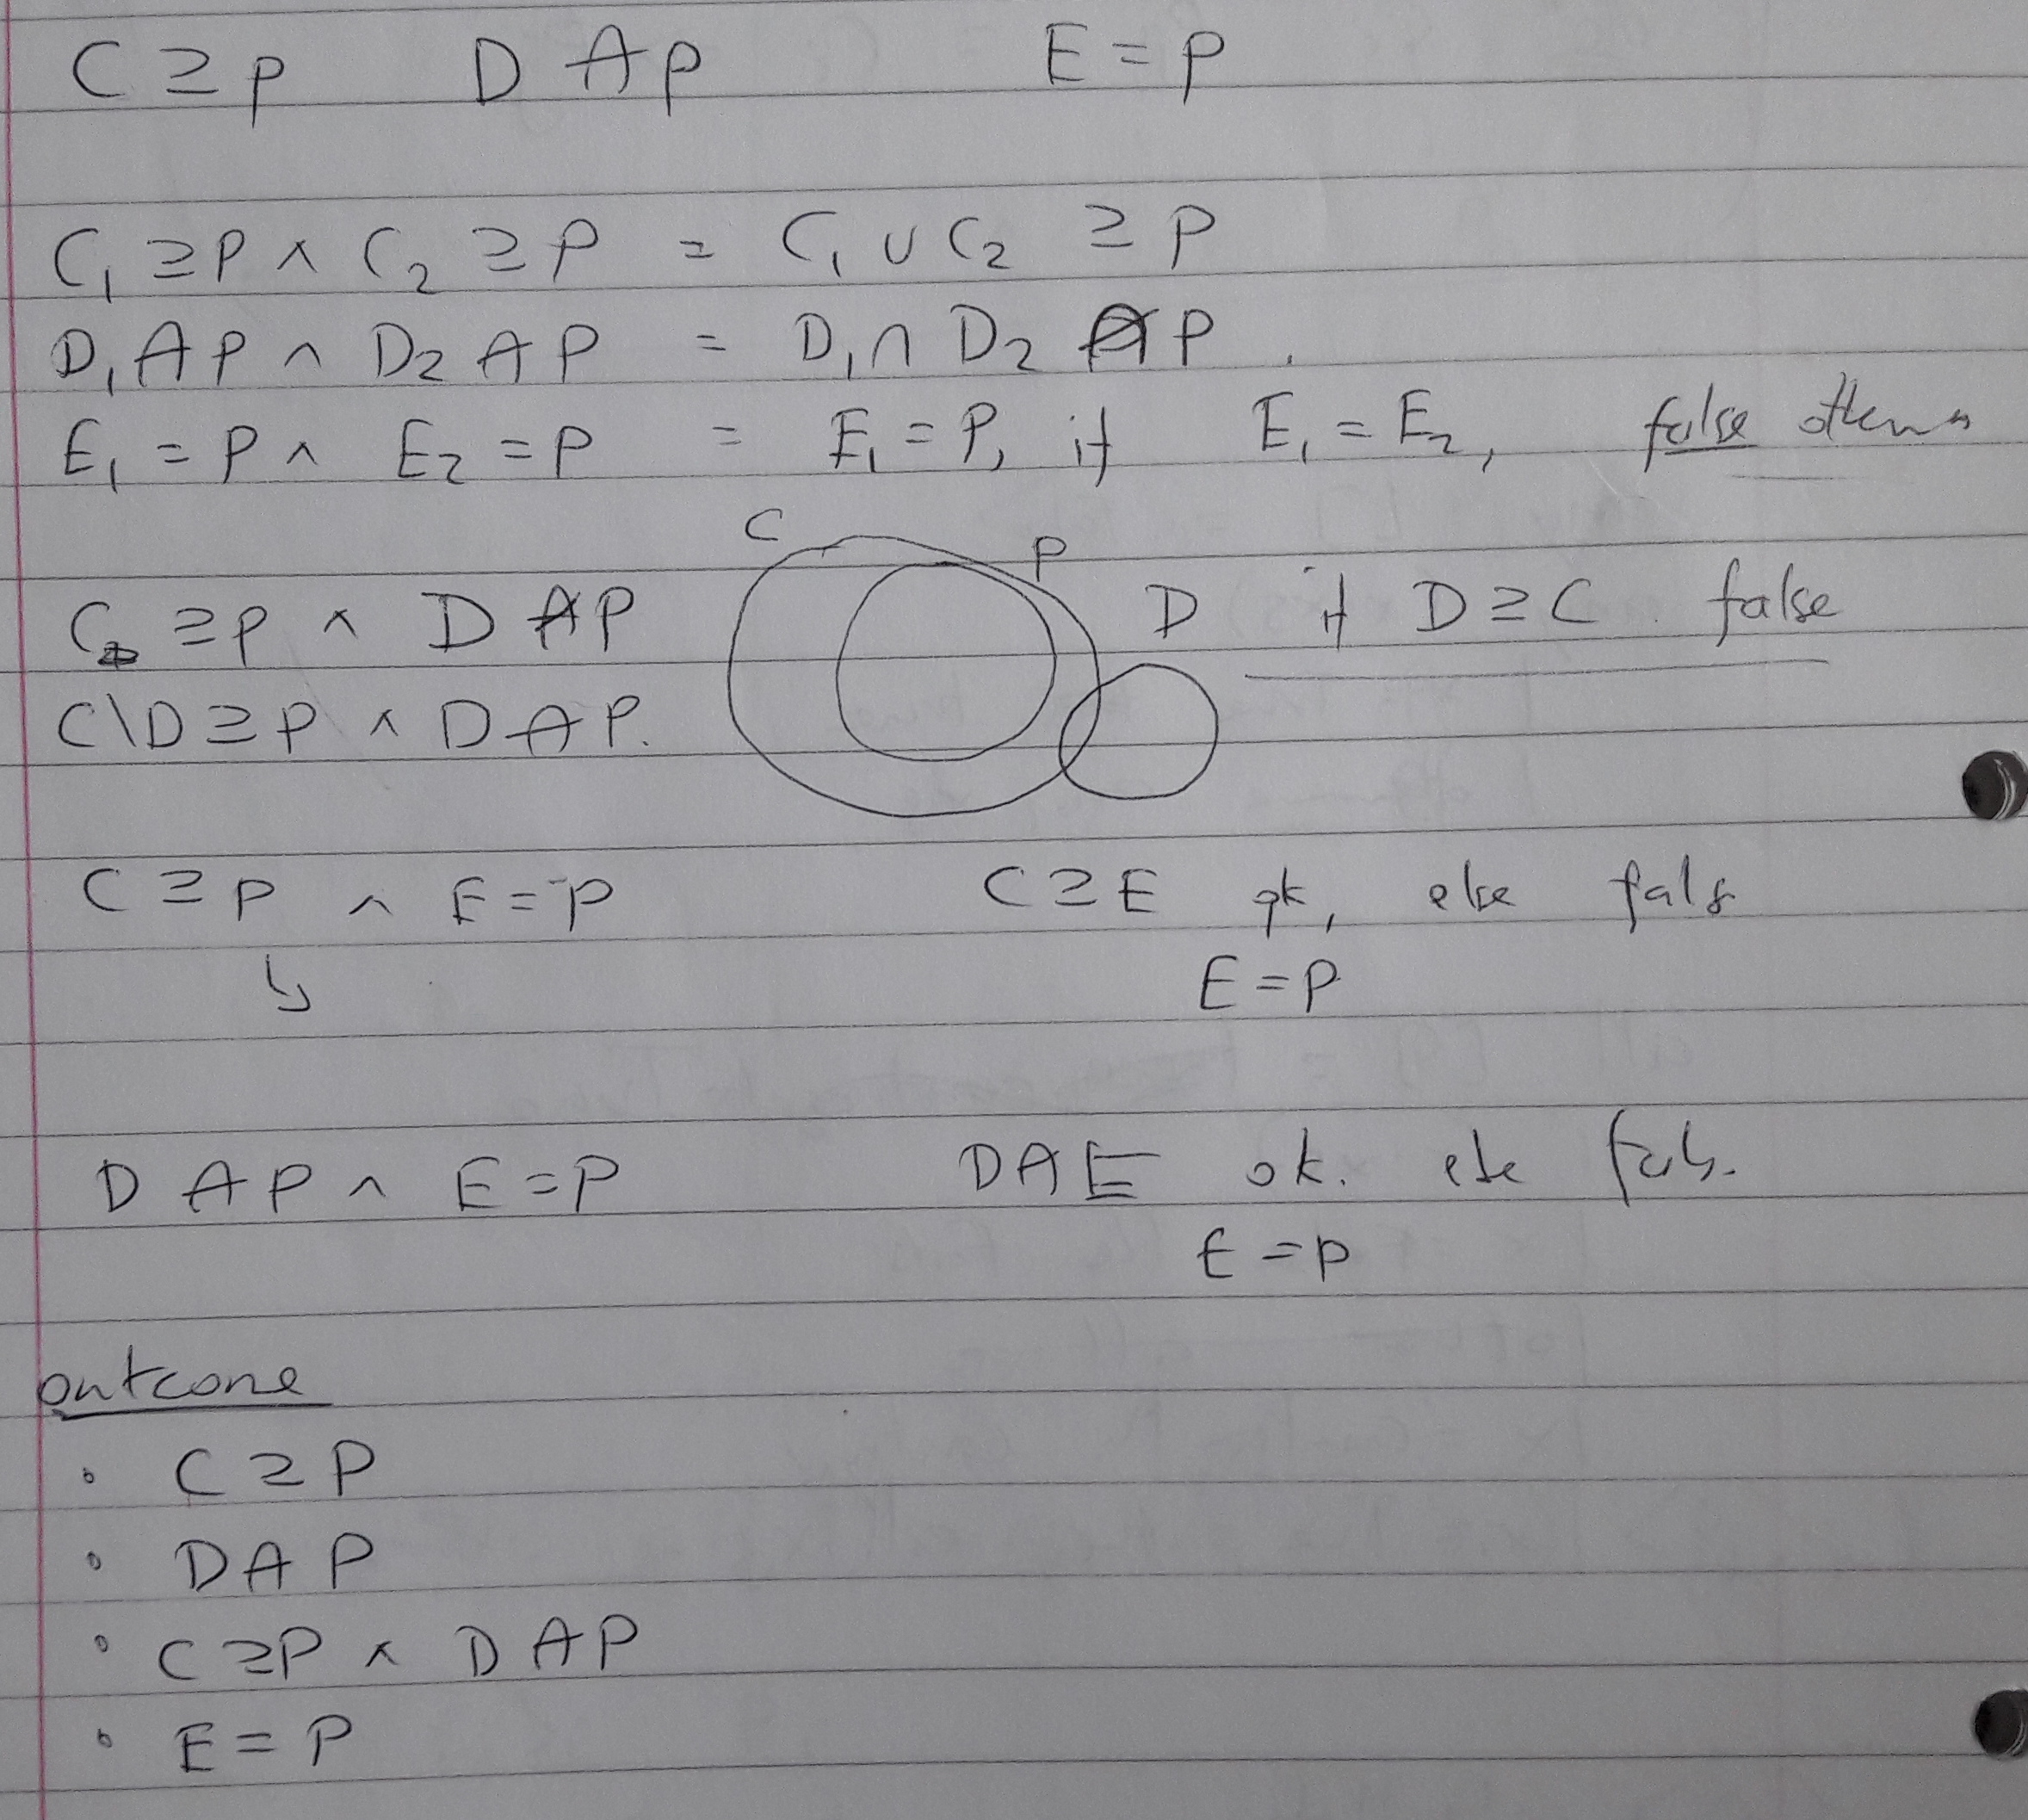 C ⊇ P D A P E = P
C₁ ⊇ P ∧ C₂ ⊇ P = C₁ ∪ C₂ ⊇ P
D₁ A P ∧ D₂ A P = D₁ ∩ D₂ A P.
E₁ = P ∧ E₂ = P = E₁ = P, if E₁ = E₂, false
C P
C ⊇ P ∧ D A P D if D ⊇ C false
C\D ⊇ P ∧ D A P.
C ⊇ P ∧ E = P C ⊇ E ok, else fals
↳ E = P
D A P ∧ E = P D A E ok. else fals.
E = P
outcome
• C ⊇ P
• D A P
• C ⊇ P ∧ D A P
• E = P